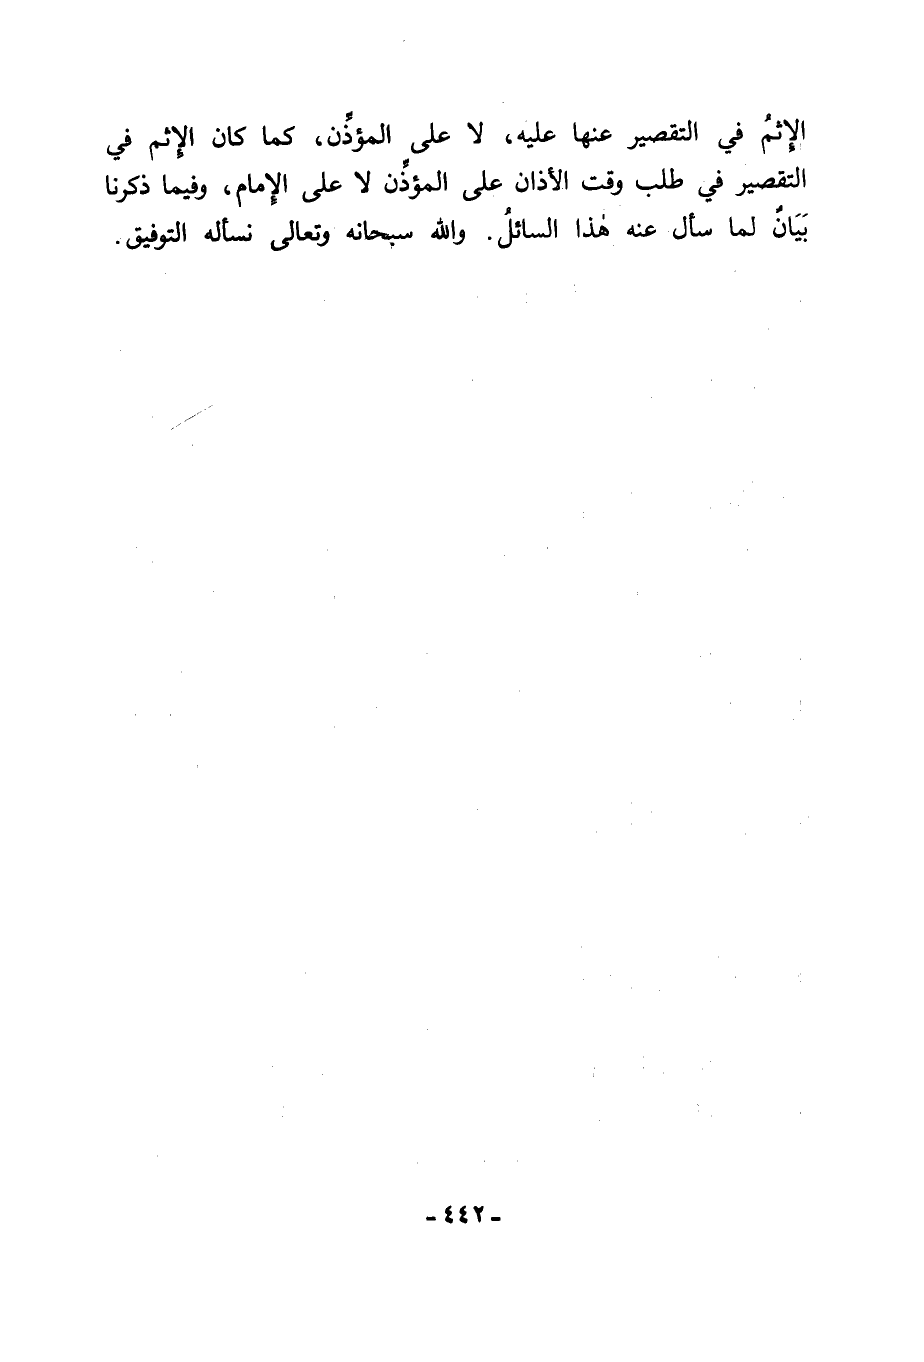 الإِثمُ في التقصير عنها عليه، لا على المؤذِّن، كما كان الإِثم في
التقصير في طلب وقت الأذان على المؤذِّن لا على الإِمام، وفيما ذكرنا
بَيَانٌ لما سأل عنه هٰذا السائلُ. والله سبحانه وتعالى نسأله التوفيق.
- ٤٤٢ -